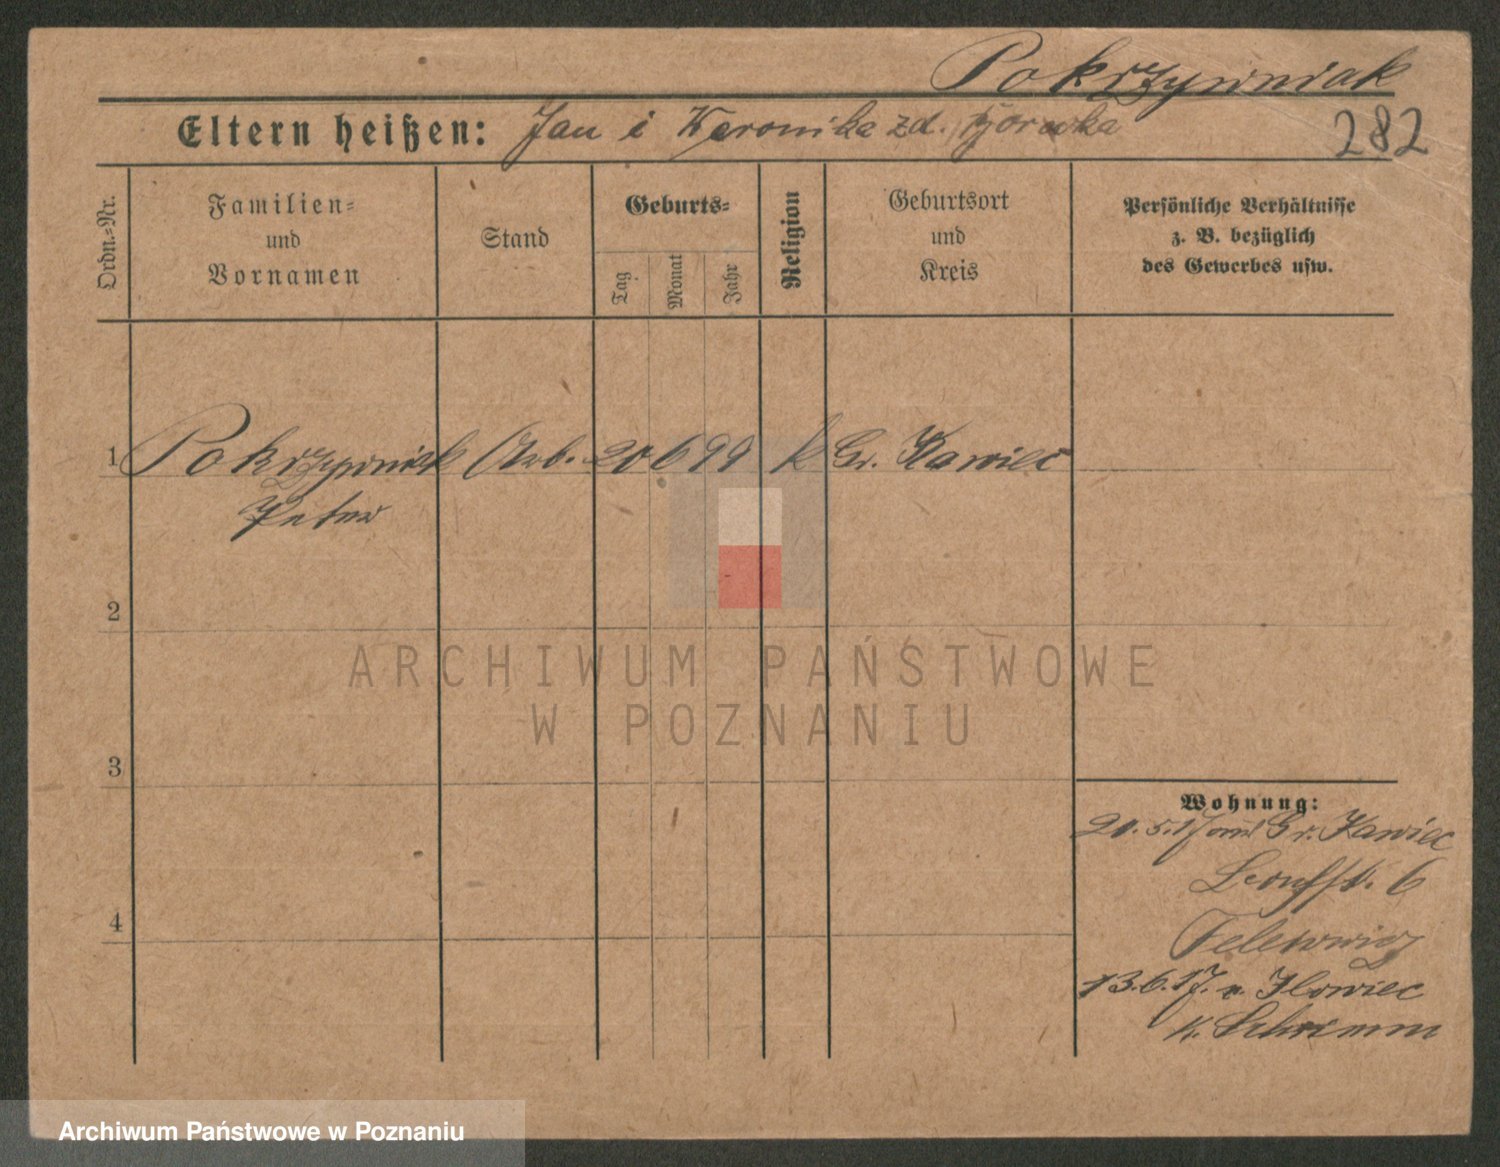 Pokrzywniak
Eltern heißen: Jan i Weronika zd.
282
Ordn.-Nr.
Familien-
und
Vornamen
Stand
Geburts-
Tag
Monat
Jahr
Religion
Geburtsort
und
Kreis
Persönliche Verhältnisse
z. B. bezüglich
des Gewerbes usw.
1 Pokrzywniak Arb. 20 6 99 k Gr. Kawiec
Peter
2
3
4
Wohnung:
20.5.17 Gr. Kawiec
6
13.6.17. n. Ilowiec
K. Schrimm
ARCHIWUM PAŃSTWOWE
W POZNANIU
Archiwum Państwowe w Poznaniu